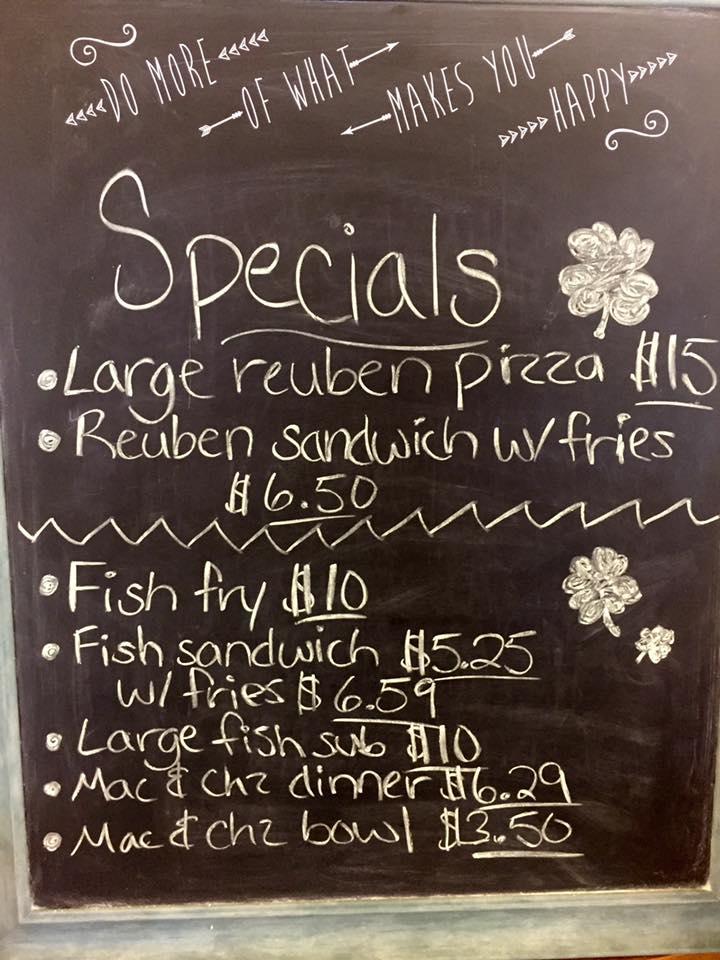 DO MORE
OF WHAT
MAKES YOU
HAPPY
Specials
• Large reuben pizza $15
• Reuben sandwich w/ fries
$6.50
• Fish fry $10
• Fish sandwich $5.25
w/ fries $6.59
• Large fish sub $10
• Mac & chz dinner $6.29
• Mac & chz bowl $3.50